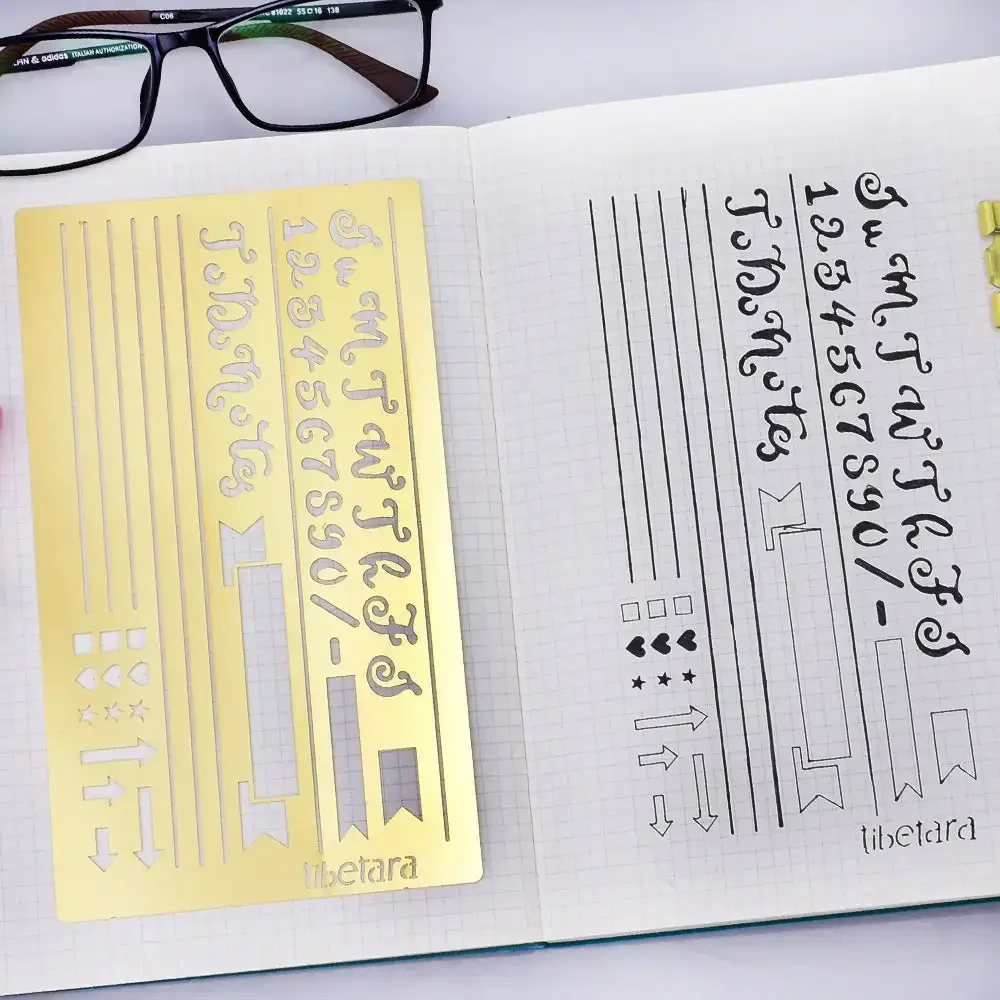 C06 61022 55□16 138
LAN & adidas ITALIAN AUTHORIZATION
Su M T W Th F S
1234567890/-
To Do Notes
tibetara
Su M T W Th F S
1234567890/-
To Do Notes
tibetara